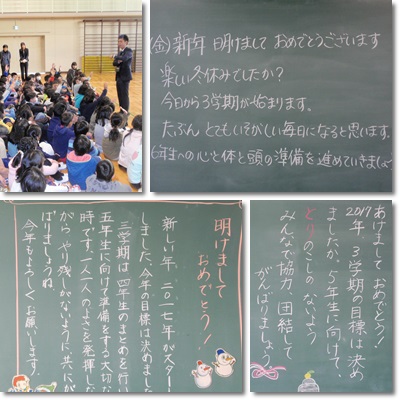 (金)新年 明けまして おめでとうございます
楽しい冬休みでしたか？
今日から3学期が始まります。
たぶん とてもいそがしい毎日になると思います。
6年生への心と体と頭の準備を進めていきまし
明けまして
おめでとう！
新しい年、二〇一七年がスター
しました、今年の目標は決めまし
三学期は四年生のまとめを行い
五年生に向けて準備をする大切な
時です。一人一人のよさを発揮しな
がら やり残しがないように 共にが
ばりましょうね
今年もよろしくお願いします！
あけまして おめでとう！
2017年 3学期の目標は決め
ましたか。5年生に向けて、
とりのこしのないよう
みんなで協力、団結して
がんばりましょう